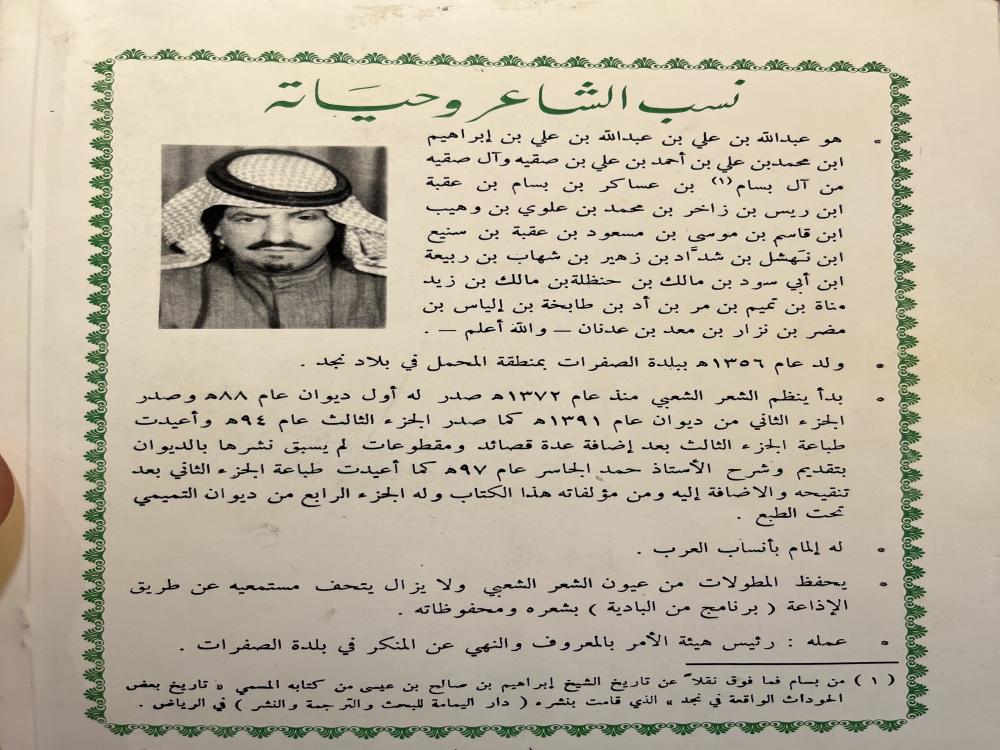 نسب الشاعر وحياته
* هو عبدالله بن علي بن عبدالله بن علي بن إبراهيم
ابن محمدبن علي بن أحمد بن علي بن صقيه وآل صقيه
من آل بسام(١) بن عساكر بن بسام بن عقبة
ابن ريس بن زاخر بن محمد بن علوي بن وهيب
ابن قاسم بن موسى بن مسعود بن عقبة بن سنيع
ابن نهشل بن شداد بن زهير بن شهاب بن ربيعة
ابن أبي سود بن مالك بن حنظلةبن مالك بن زيد
مناة بن تميم بن مر بن أد بن طابخة بن إلياس بن
مضر بن نزار بن معد بن عدنان — والله أعلم — .
* ولد عام ١٣٥٦هـ ببلدة الصفرات بمنطقة المحمل في بلاد نجد .
* بدأ ينظم الشعر الشعبي منذ عام ١٣٧٢هـ صدر له أول ديوان عام ٨٨هـ وصدر
الجزء الثاني من ديوان عام ١٣٩١هـ كما صدر الجزء الثالث عام ٩٤هـ وأعيدت
طباعة الجزء الثالث بعد إضافة عدة قصائد ومقطوعات لم يسبق نشرها بالديوان
بتقديم وشرح الأستاذ حمد الجاسر عام ٩٧هـ كما أعيدت طباعة الجزء الثاني بعد
تنقيحه والاضافة إليه ومن مؤلفاته هذا الكتاب وله الجزء الرابع من ديوان التميمي
تحت الطبع .
* له إلمام بأنساب العرب .
* يحفظ المطولات من عيون الشعر الشعبي ولا يزال يتحف مستمعيه عن طريق
الإذاعة ( برنامج من البادية ) بشعره ومحفوظاته .
* عمله : رئيس هيئة الأمر بالمعروف والنهي عن المنكر في بلدة الصفرات .
( ١ ) من بسام فما فوق نقلاً عن تاريخ الشيخ إبراهيم بن صالح بن عيسى من كتابه المسمي « تاريخ بعض
الحوداث الواقعة في نجد » الذي قامت بنشره ( دار اليمامة للبحث والترجمة والنشر ) في الرياض .